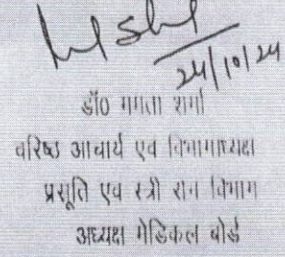 24/10/24
डॉ० ममता शर्मा
वरिष्ठ आचार्य एवं विभागाध्यक्ष
प्रसूति एवं स्त्री रोग विभाग
अध्यक्ष मेडिकल बोर्ड